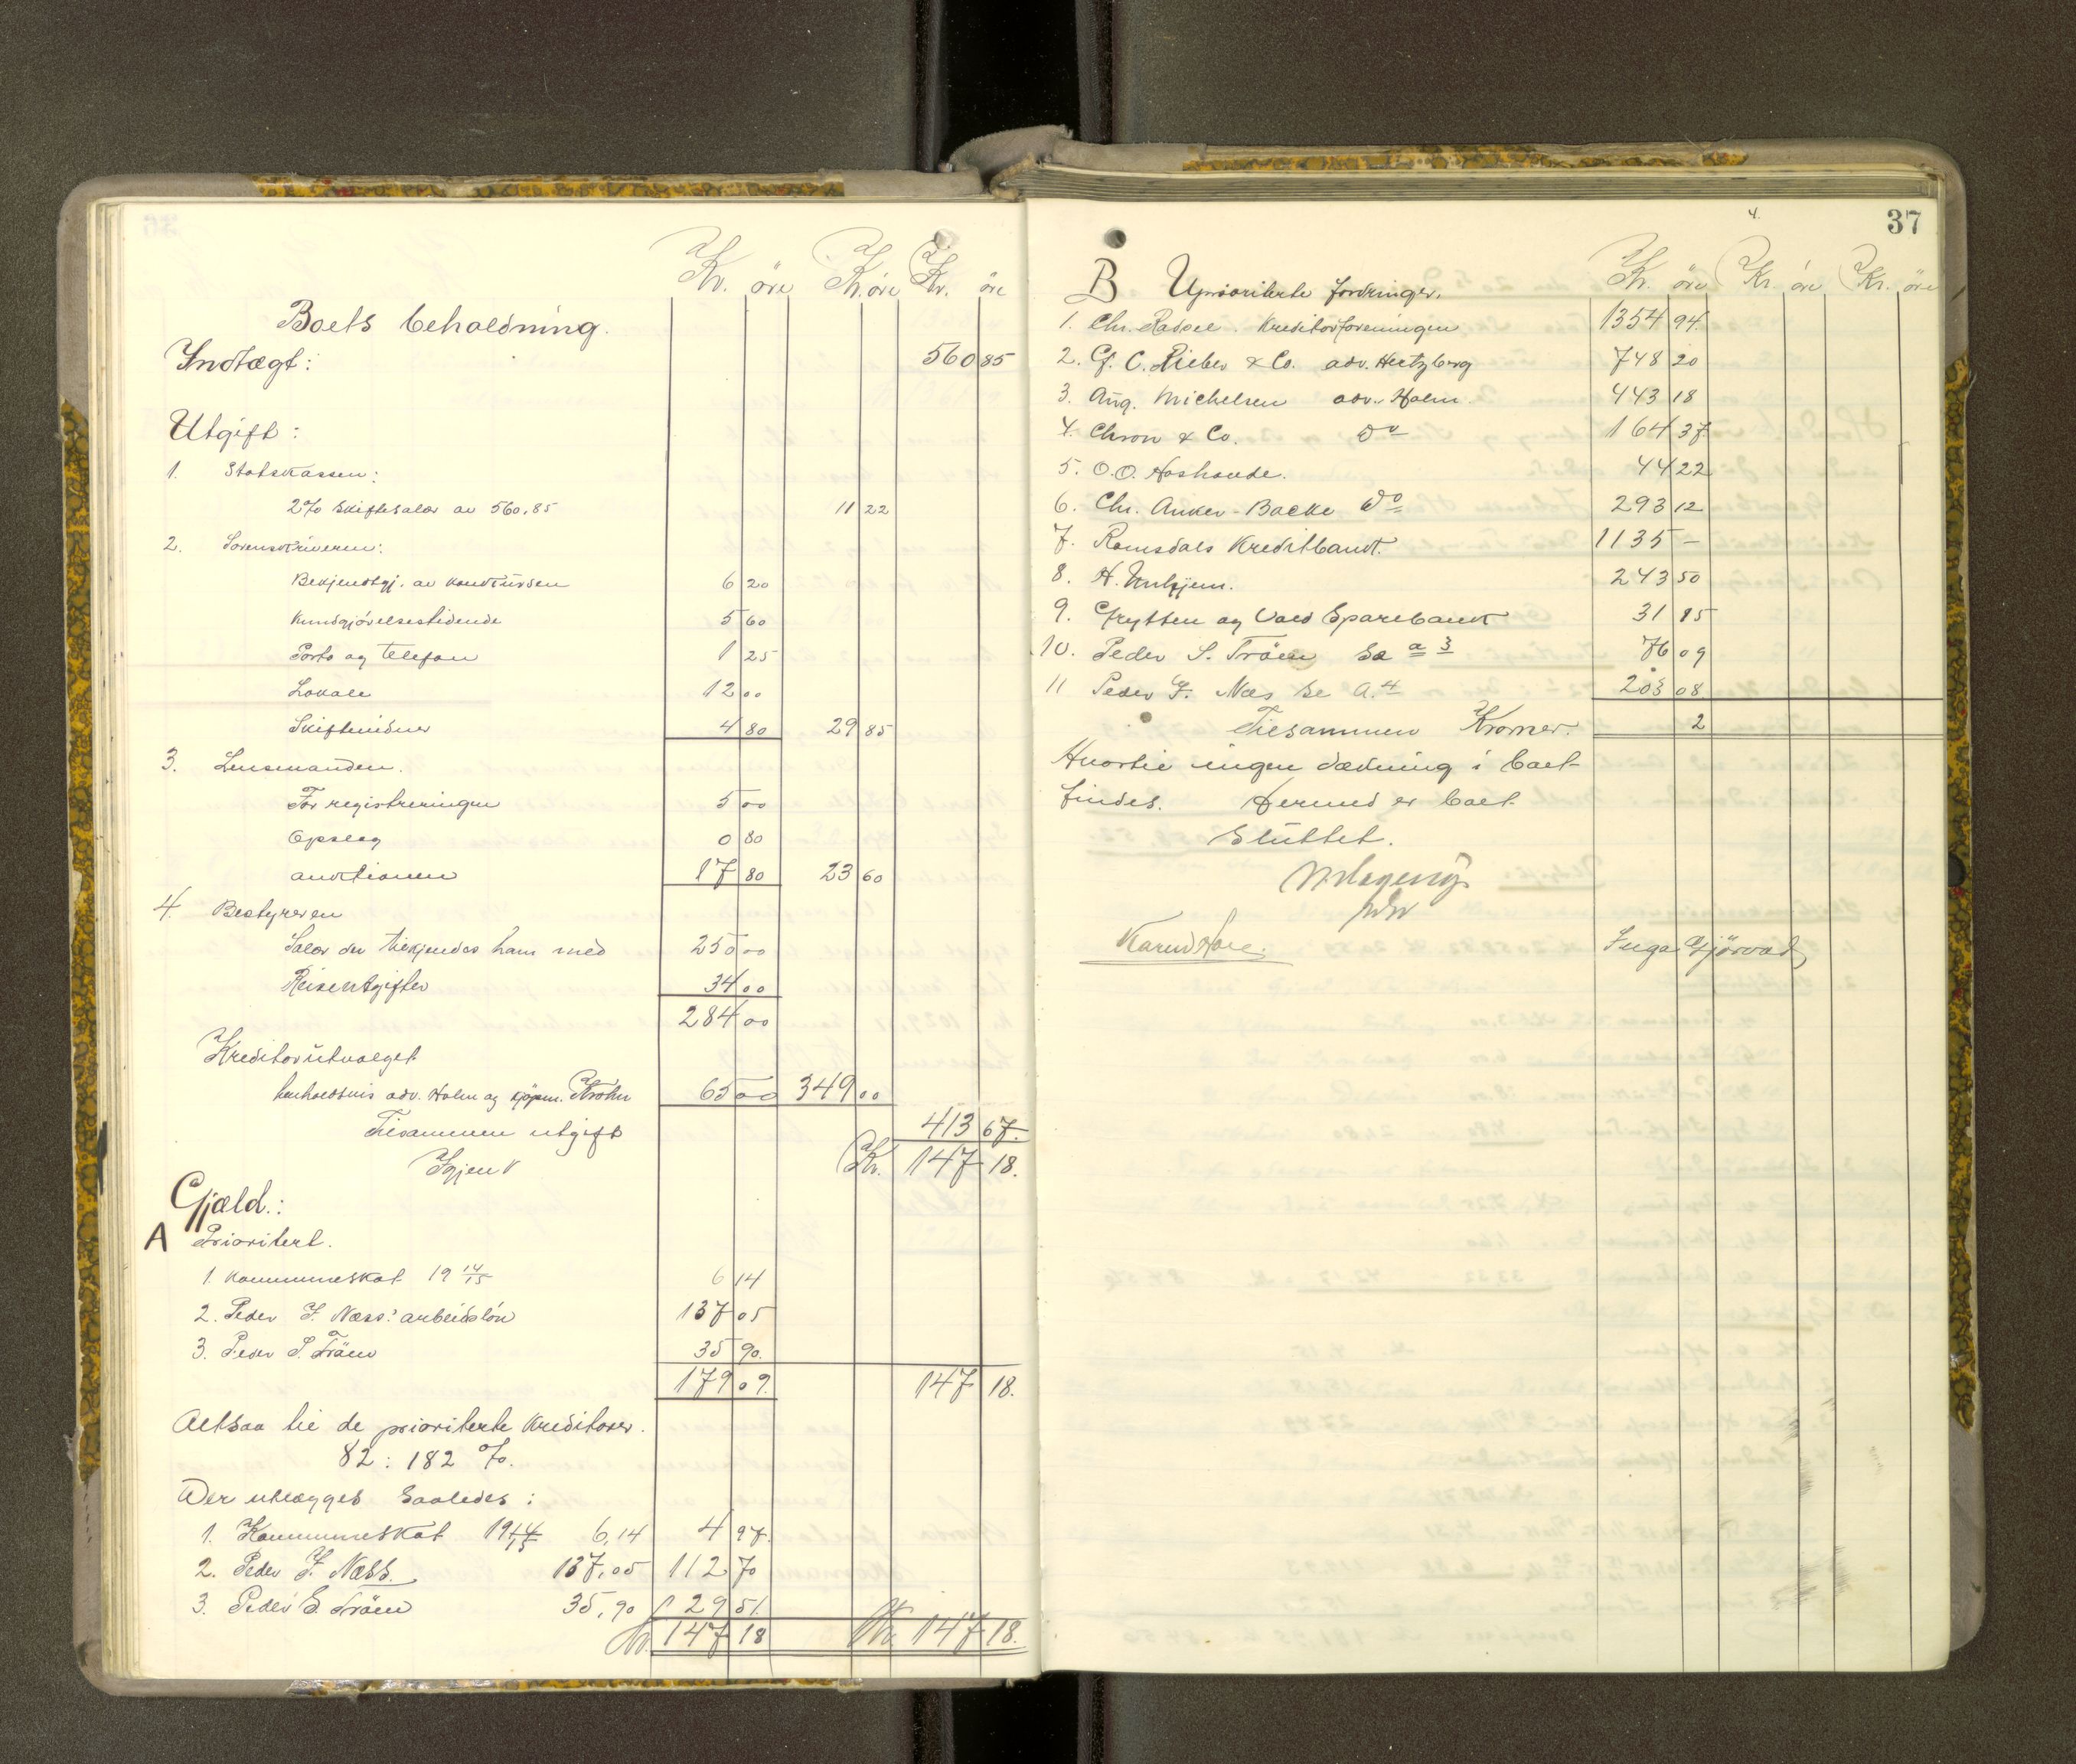 Kr. öre Kr. öre Kr. öre
Boets beholdning.
Indtægt: 560 85
Utgift:
1. Statskassen:
2% Skiftesalær av 560,85 11 22
2. Sorenskriveren:
Bekjendtgj. av konkursen 6 20
Kundgjörelsestidende 5 60
Porto og telefon 1 25
Lokale 12 00
Skiftevidner 4 80 29 85
3. Lensmanden.
For registreringen 5 00
Opslag 0 80
auktionen 17 80 23 60
4. Bestyreren
Salær der tilkjendes ham med 250 00
Reiseutgifter 34 00
284 00
Kreditorutvalget
henholdsvis adv. Holm og kjøpm. Krohn 65 00 349 00
Tilsammen utgift 413 67.
Igjen Kr. 147 18.
Gjæld.:
A Prioritert.
1. Kommuneskat 19 14/15 6 14
2. Peder F. Næss: arbeidslön 137 05
3. Peder S. Tröen 35 90.
179 09. 147 18.
Altsaa til de prioriterte kreditorer.
82: 182 %.
Der utlægges saaledes:
1. Kommuneskat 19 14/15 6,14 4 97.
2. Peder F. Næss. 137,05 112 70
3. Peder S. Tröen 35,90 29 51.
Kr. 147 18 Kr. 147 18.
4.
37
Kr. öre Kr. öre Kr. öre
B Uprioriterte fordringer.
1. Chr. Kreditorforeningen 1354 94.
2. G. C. Rieber & Co. adv. Hertzberg 748 20
3. Aug. Michelsen adv. Holm. 443 18
4. & Co. Do 164 37.
5. O.O. 44 22
6. Chr. Anker-Backe Do 293 12
7. Romsdals Kreditbank. 1135 –
8. H. 243 50
9. Grytten og Vold Sparebank 31 85
10. Peder S. Tröen se a 3 76 09
11 Peder F. Næs se A. 4 203 08
Tilsammen Kroner. 2
Hvortil ingen dækning i boet
findes. Dermed er boet
sluttet.
Inga Gjörvad